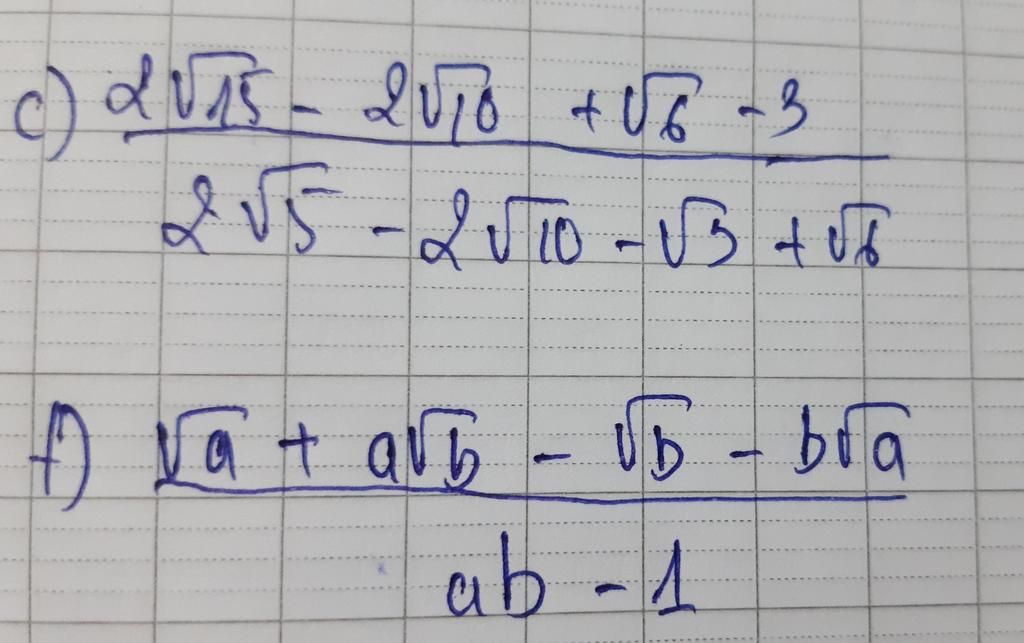 c) 2√15 - 2√10 + √6 - 3
2√5 - 2√10 - √3 + √6
f) √a + a√b - √b - b√a
ab - 1